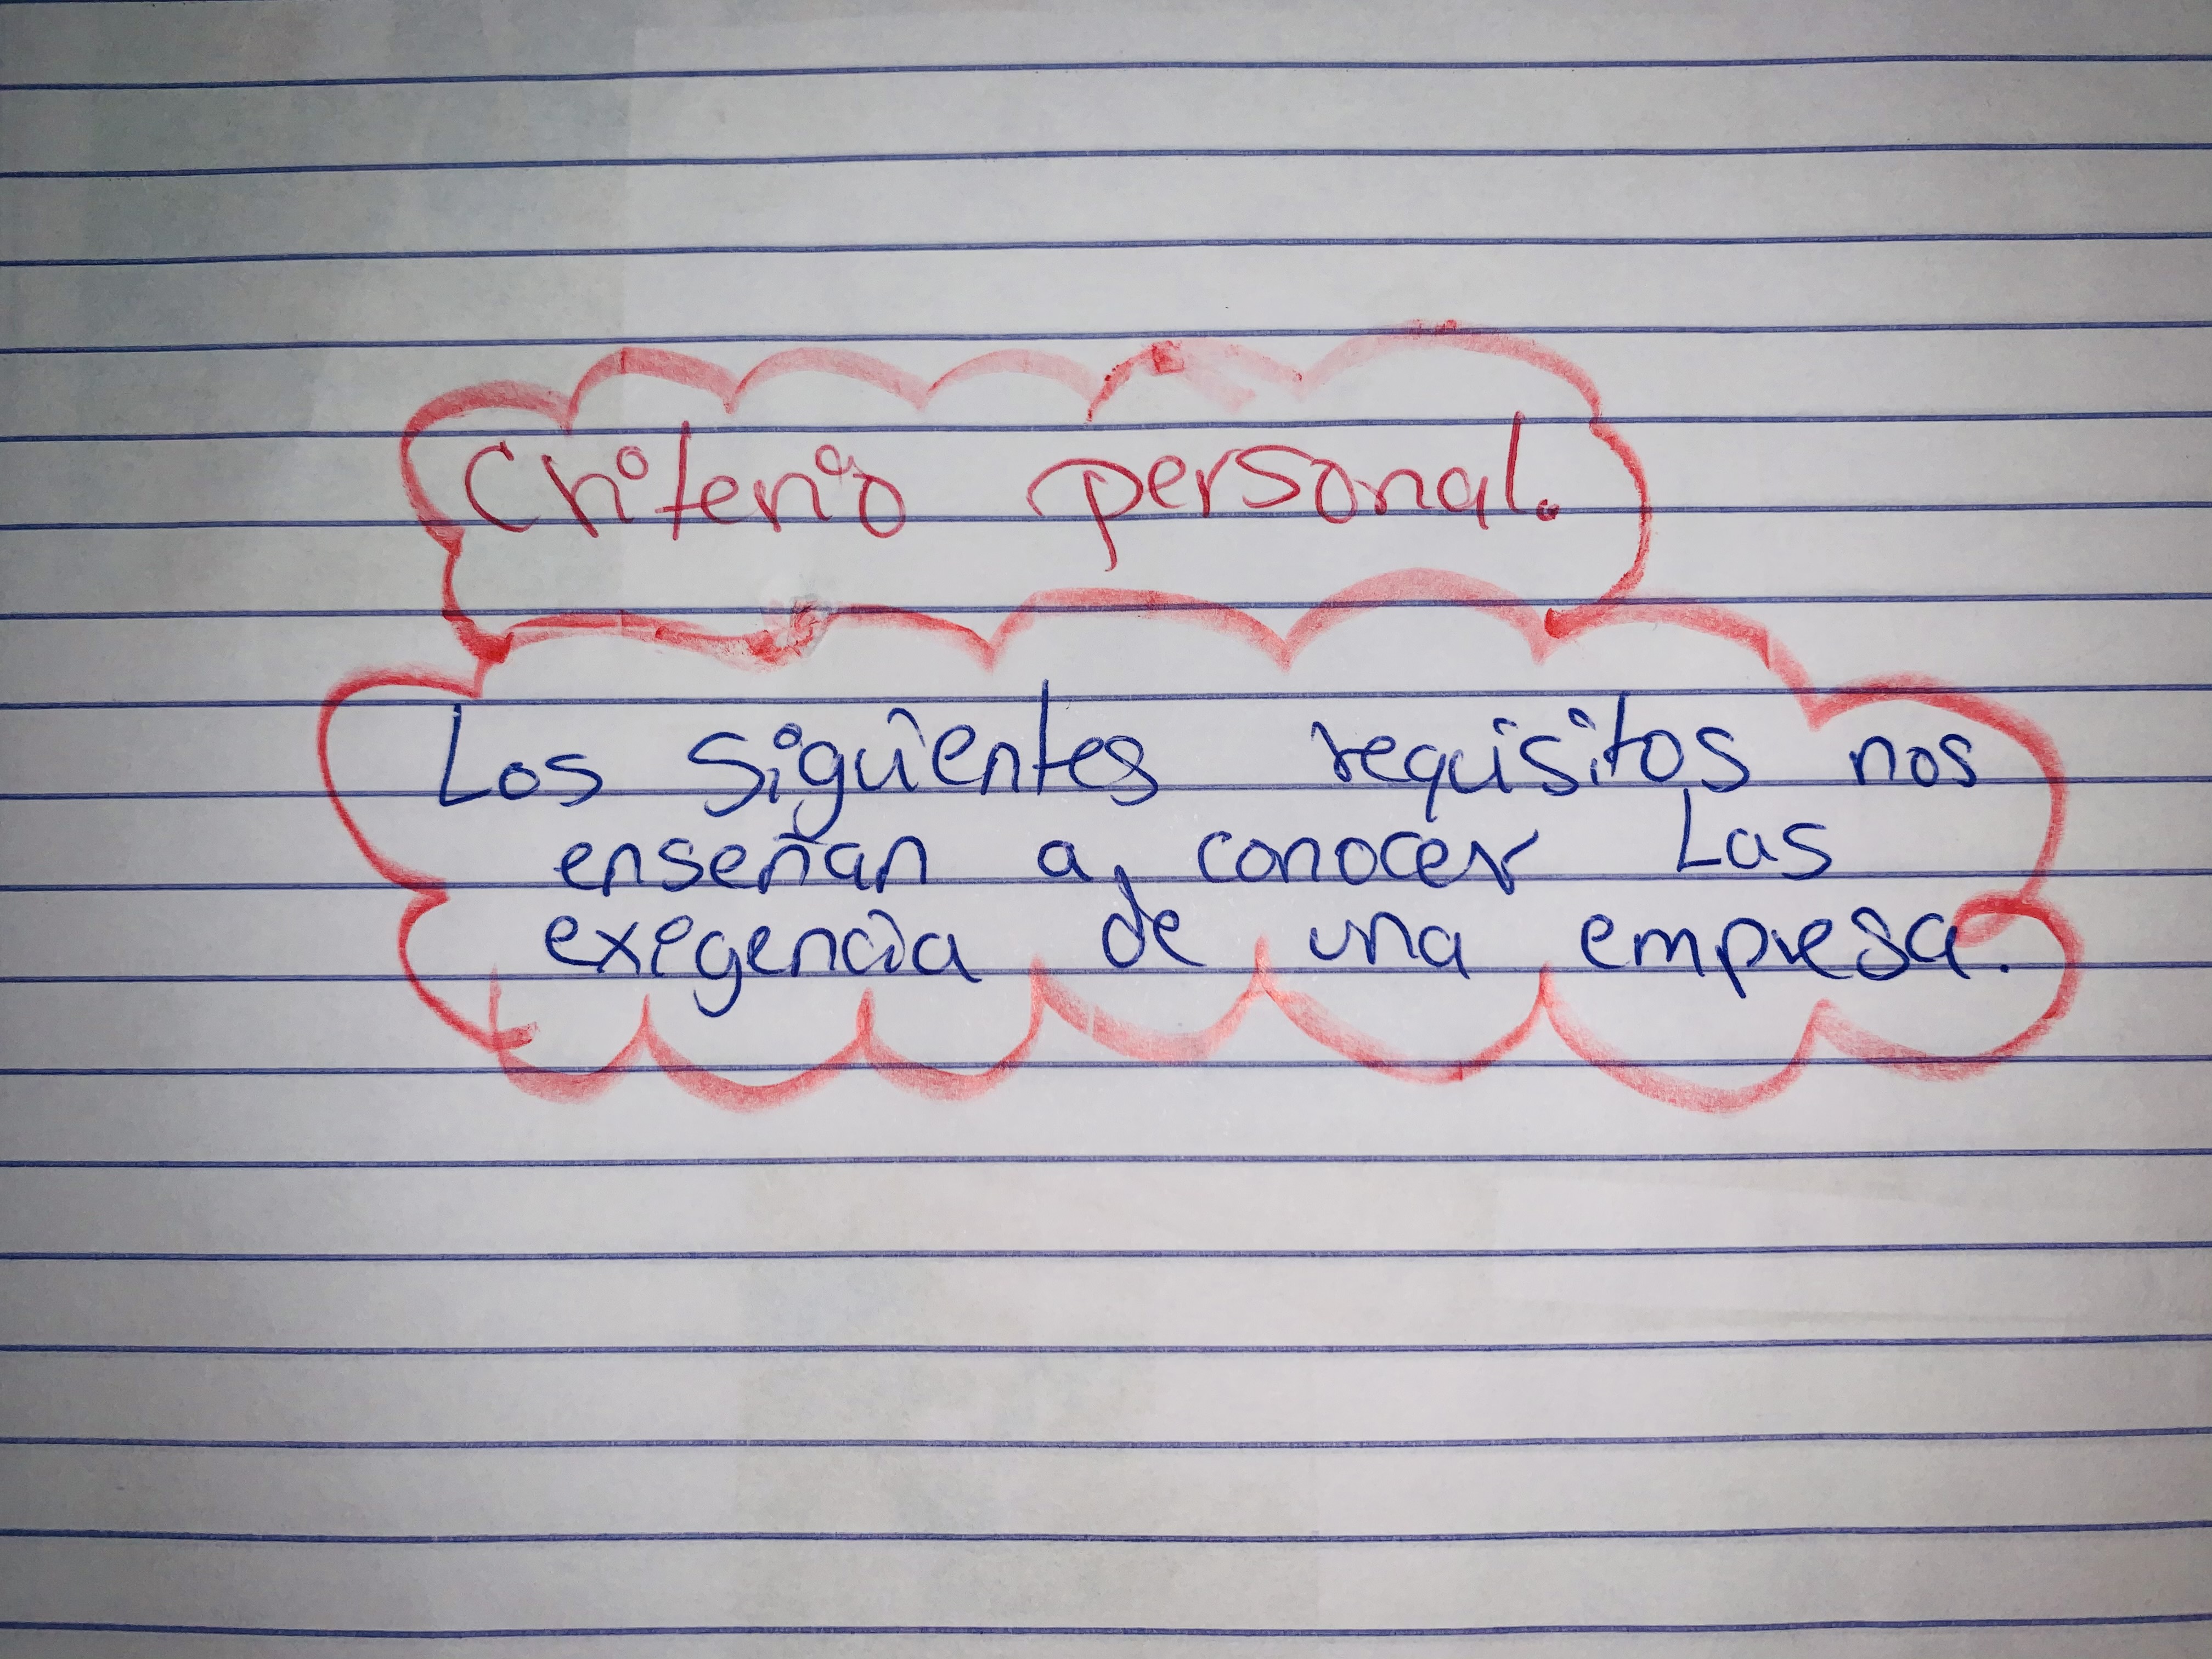 Criterio personal.
Los siguientes requisitos nos
enseñan a conocer Las
exigencia de una empresa.